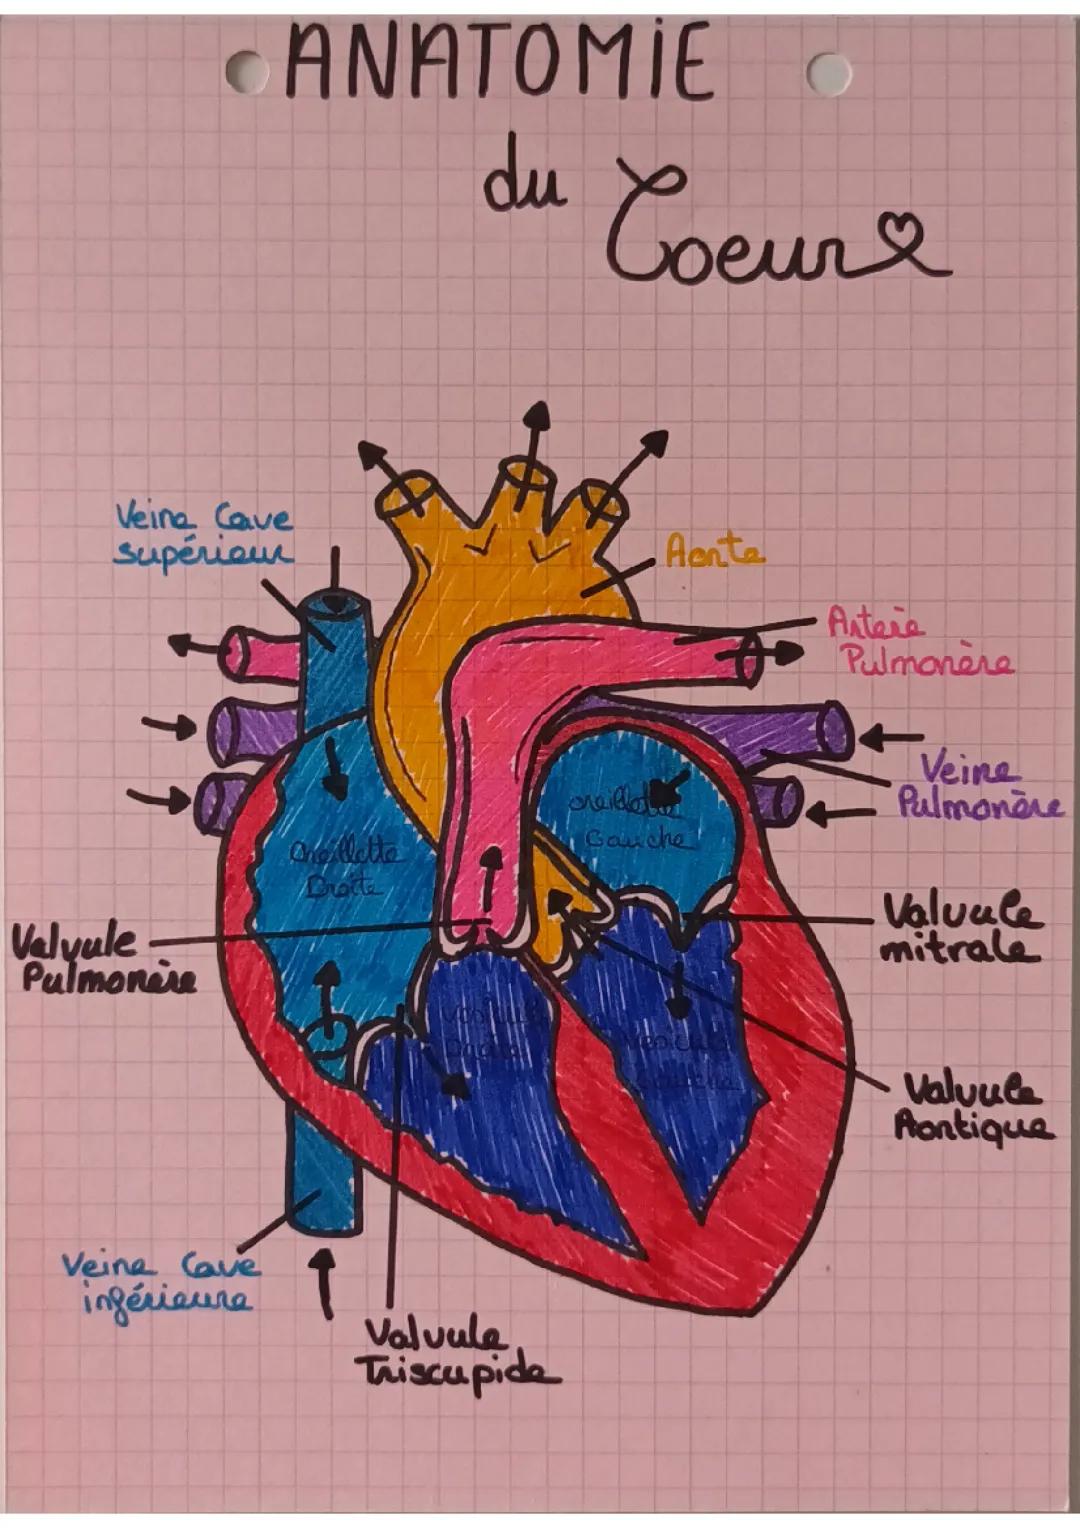 ANATOMiE
du Coeur
Veine Cave
supérieur
Aorta
Arterie
Pulmonère
Veine
Pulmonère
oreillette
Gauche
Oreillette
Droite
Valvule
mitrale
Valvule
Pulmonère
Droite
Gauche
Valvule
Aortique
Veine Cave
inférieure
Valvule
Triscupide